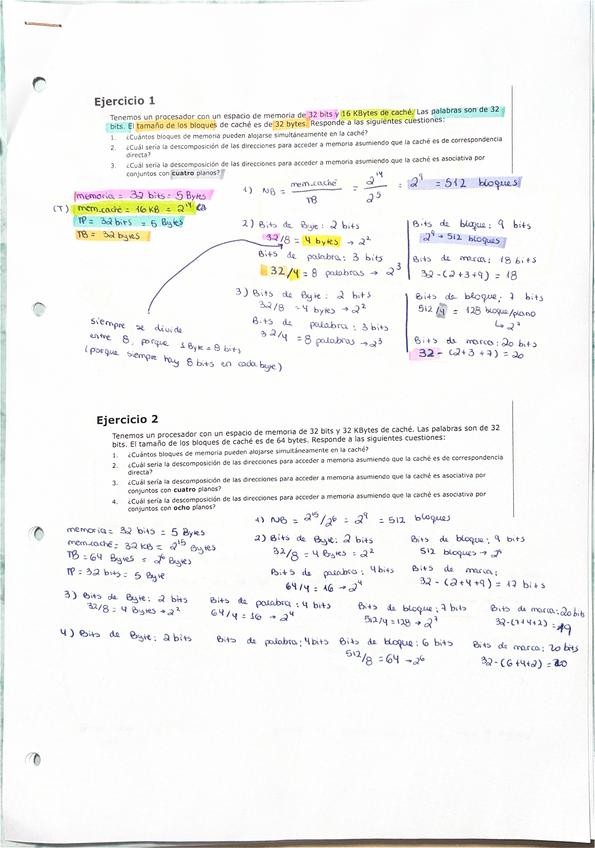 Ejercicio 1
Tenemos un procesador con un espacio de memoria de 32 bits y 16 KBytes de caché. Las palabras son de 32
bits. El tamaño de los bloques de caché es de 32 bytes. Responde a las siguientes cuestiones:
1. ¿Cuántos bloques de memoria pueden alojarse simultáneamente en la caché?
2. ¿Cuál sería la descomposición de las direcciones para acceder a memoria asumiendo que la caché es de correspondencia
directa?
3. ¿Cuál sería la descomposición de las direcciones para acceder a memoria asumiendo que la caché es asociativa por
conjuntos con cuatro planos?
memoria = 32 bits = 5 Bytes
(T) mem.caché = 16 KB = 2^14
TP = 32 bits = 5 Bytes
TB = 32 bytes
1) NB = mem.caché / TB = 2^14 / 2^5 = 2^9 = 512 bloques
2) Bits de Byte: 2 bits
32/8 = 4 bytes → 2^2
Bits de palabra: 3 bits
32/4 = 8 palabras → 2^3
Bits de bloque: 9 bits
2^9 → 512 bloques
Bits de marca: 18 bits
32 - (2+3+9) = 18
3) Bits de Byte: 2 bits
32/8 = 4 bytes → 2^2
Bits de palabra: 3 bits
32/4 = 8 palabras → 2^3
Bits de bloque: 7 bits
512/4 = 128 bloque/plano
↳ 2^7
Bits de marca: 20 bits
32 - (2+3+7) = 20
siempre se divide
entre 8, porque 1 Byte = 8 bits
(porque siempre hay 8 bits en cada byte)
Ejercicio 2
Tenemos un procesador con un espacio de memoria de 32 bits y 32 KBytes de caché. Las palabras son de 32
bits. El tamaño de los bloques de caché es de 64 bytes. Responde a las siguientes cuestiones:
1. ¿Cuántos bloques de memoria pueden alojarse simultáneamente en la caché?
2. ¿Cuál sería la descomposición de las direcciones para acceder a memoria asumiendo que la caché es de correspondencia
directa?
3. ¿Cuál sería la descomposición de las direcciones para acceder a memoria asumiendo que la caché es asociativa por
conjuntos con cuatro planos?
4. ¿Cuál sería la descomposición de las direcciones para acceder a memoria asumiendo que la caché es asociativa por
conjuntos con ocho planos?
memoria = 32 bits = 5 Bytes
mem.caché = 32 KB = 2^15 Bytes
TB = 64 Bytes = 2^6 Bytes
TP = 32 bits = 5 Byte
1) NB = 2^15/2^6 = 2^9 = 512 bloques
2) Bits de Byte: 2 bits
32/8 = 4 Bytes = 2^2
Bits de palabra: 4 bits
64/4 = 16 → 2^4
Bits de bloque: 9 bits
512 bloques → 2^9
Bits de marca:
32 - (2+4+9) = 17 bits
3) Bits de Byte: 2 bits
32/8 = 4 Bytes → 2^2
Bits de palabra: 4 bits
64/4 = 16 → 2^4
Bits de bloque: 7 bits
512/4 = 128 → 2^7
Bits de marca: 20 bits
32 - (7+4+2) = 19
4) Bits de Byte: 2 bits
Bits de palabra: 4 bits
Bits de bloque: 6 bits
512/8 = 64 → 2^6
Bits de marca: 20 bits
32 - (6+4+2) = 20